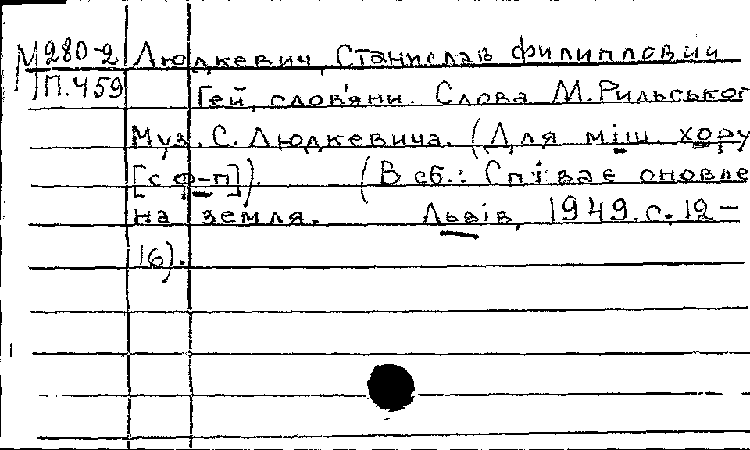 М280-2 Людкевич, Станислав Филиппович
П.459 Гей, слов'яни. Слова М.Рильськог
Муз. С. Людкевича. (Для міш. хору
[с ф-п]). (В сб.: Співає оновле
на земля. Львів, 1949. с. 12-
16).